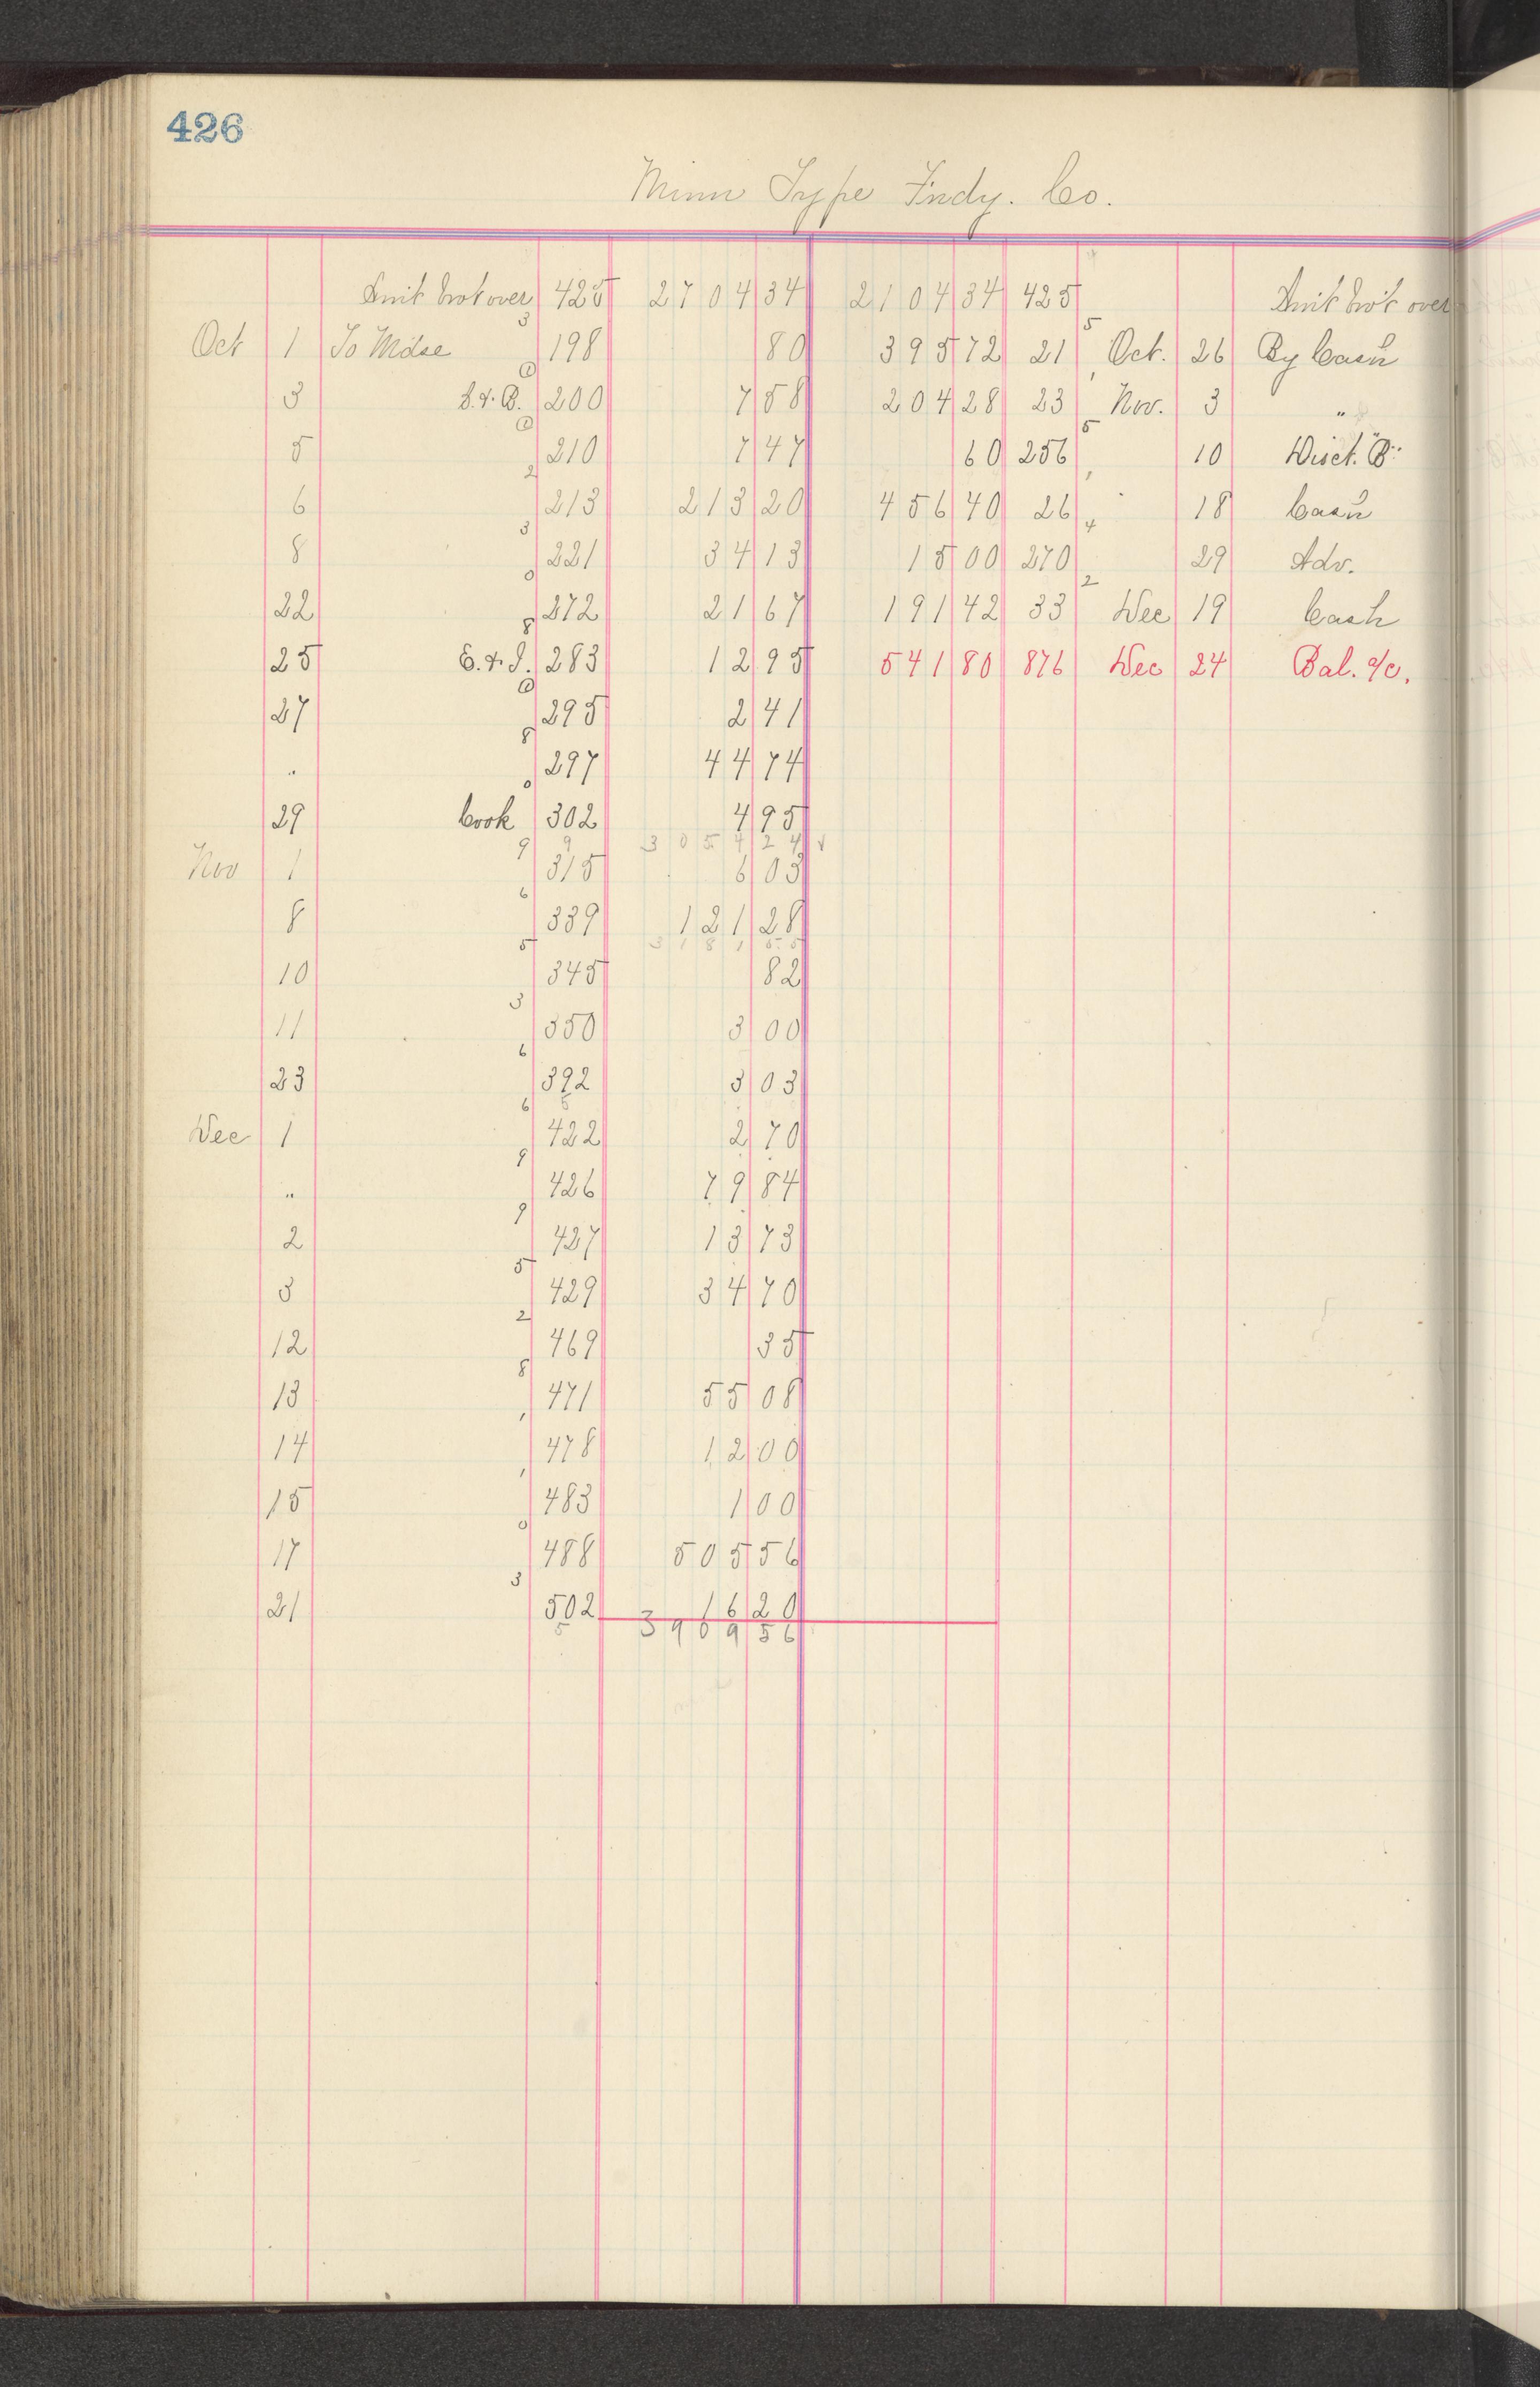 426
Minn Type Fndy. Co.
Amt brot over 425 2704 34 2104 34 425 Amt bro't over
Oct 1 To Mdse 198 80 395 72 21 Oct. 26 By Cash
3 200 7 58 204 28 23 Nov. 3 "
5 210 7 47 60 256 10 Disct. B
6 213 213 20 456 40 26 18 Cash
8 221 34 13 15 00 270 29 Adv.
22 272 21 67 191 42 33 Dec 19 Cash
25 E. & I. 283 12 95 541 80 876 Dec 24 Bal. a/c.
27 295 2 41
" 297 44 74
29 Cook 302 4 95
3054 24
Nov 1 315 6 03
8 339 121 28
3181 55
10 345 82
11 350 3 00
23 392 3 03
Dec 1 422 2 70
" 426 79 84
2 427 13 73
3 429 34 70
12 469 35
13 471 55 08
14 478 12 00
15 483 1 00
17 488 505 56
21 502 16 20
3909 56